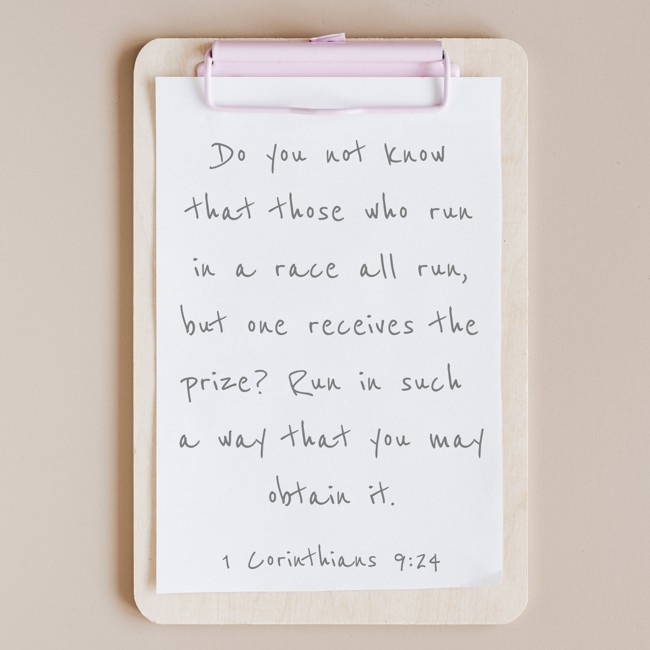 Do you not know
that those who run
in a race all run,
but one receives the
prize? Run in such
a way that you may
obtain it.
1 Corinthians 9:24